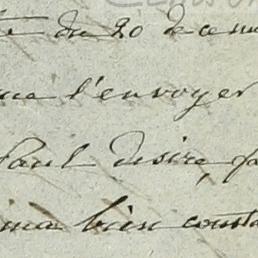 du 20 décem
l'envoyer
Paul desire
bien consta